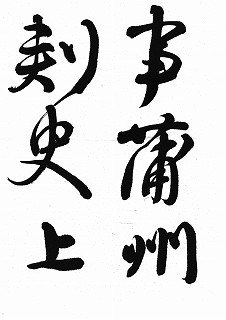 事蒲州
刺史上